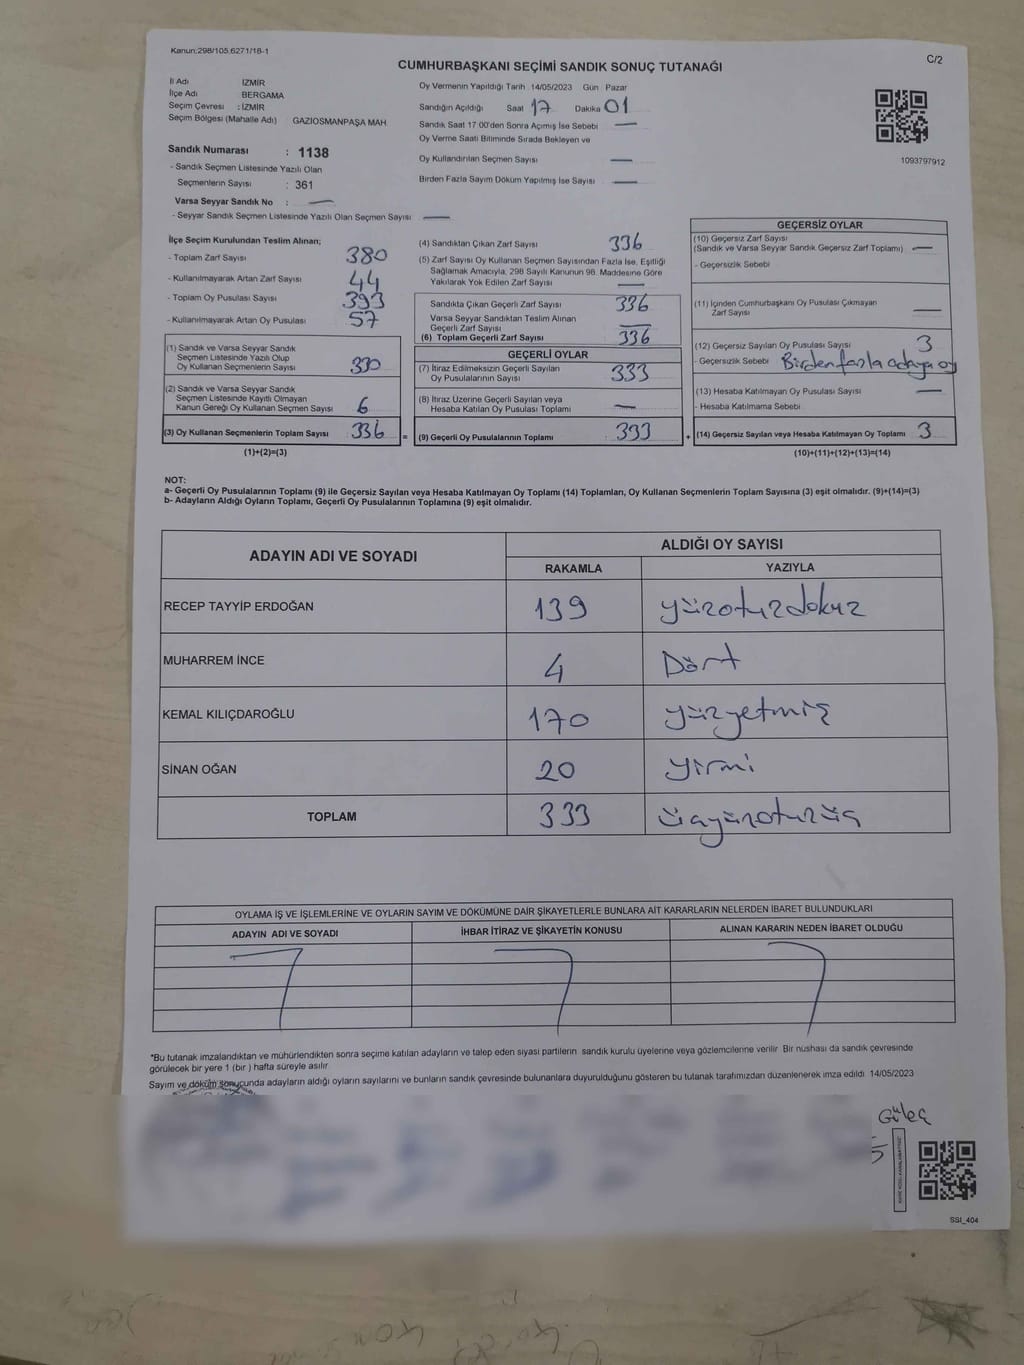 Kanun:298/105.6271/16-1
C/2
CUMHURBAŞKANI SEÇİMİ SANDIK SONUÇ TUTANAĞI
İl Adı İZMİR
İlçe Adı BERGAMA
Seçim Çevresi : İZMİR
Seçim Bölgesi (Mahalle Adı) GAZİOSMANPAŞA MAH
Sandık Numarası : 1138
- Sandık Seçmen Listesinde Yazılı Olan
Seçmenlerin Sayısı : 361
Varsa Seyyar Sandık No : —
- Seyyar Sandık Seçmen Listesinde Yazılı Olan Seçmen Sayısı : —
Oy Vermenin Yapıldığı Tarih : 14/05/2023 Gün : Pazar
Sandığın Açıldığı Saat 17 Dakika 01
Sandık Saat 17:00'den Sonra Açımış İse Sebebi —
Oy Verme Saati Bitiminde Sırada Bekleyen ve
Oy Kullandırılan Seçmen Sayısı —
Birden Fazla Sayım Döküm Yapılmış İse Sayısı —
1093797912
İlçe Seçim Kurulundan Teslim Alınan;
- Toplam Zarf Sayısı : 380
- Kullanılmayarak Artan Zarf Sayısı : 44
- Toplam Oy Pusulası Sayısı : 393
- Kullanılmayarak Artan Oy Pusulası : 57
(1) Sandık ve Varsa Seyyar Sandık
Seçmen Listesinde Yazılı Olup
Oy Kullanan Seçmenlerin Sayısı : 330
(2) Sandık ve Varsa Seyyar Sandık
Seçmen Listesinde Kayıtlı Olmayan
Kanun Gereği Oy Kullanan Seçmen Sayısı : 6
(3) Oy Kullanan Seçmenlerin Toplam Sayısı : 336
(1)+(2)=(3)
(4) Sandıktan Çıkan Zarf Sayısı : 336
(5) Zarf Sayısı Oy Kullanan Seçmen Sayısından Fazla İse, Eşitliği
Sağlamak Amacıyla, 298 Sayılı Kanunun 98. Maddesine Göre
Yakılarak Yok Edilen Zarf Sayısı : —
Sandıkta Çıkan Geçerli Zarf Sayısı : 336
Varsa Seyyar Sandıktan Teslim Alınan
Geçerli Zarf Sayısı : —
(6) Toplam Geçerli Zarf Sayısı : 336
GEÇERLİ OYLAR
(7) İtiraz Edilmeksizin Geçerli Sayılan
Oy Pusulalarının Sayısı : 333
(8) İtiraz Üzerine Geçerli Sayılan veya
Hesaba Katılan Oy Pusulası Toplamı : —
= (9) Geçerli Oy Pusulalarının Toplamı : 333
GEÇERSİZ OYLAR
(10) Geçersiz Zarf Sayısı
(Sandık ve Varsa Seyyar Sandık Geçersiz Zarf Toplamı) : —
- Geçersizlik Sebebi :
(11) İçinden Cumhurbaşkanı Oy Pusulası Çıkmayan
Zarf Sayısı : —
(12) Geçersiz Sayılan Oy Pusulası Sayısı : 3
- Geçersizlik Sebebi : Birden fazla adaya oy
(13) Hesaba Katılmayan Oy Pusulası Sayısı : —
- Hesaba Katılmama Sebebi :
+ (14) Geçersiz Sayılan veya Hesaba Katılmayan Oy Toplamı : 3
(10)+(11)+(12)+(13)=(14)
NOT:
a- Geçerli Oy Pusulalarının Toplamı (9) ile Geçersiz Sayılan veya Hesaba Katılmayan Oy Toplamı (14) Toplamları, Oy Kullanan Seçmenlerin Toplam Sayısına (3) eşit olmalıdır. (9)+(14)=(3)
b- Adayların Aldığı Oyların Toplamı, Geçerli Oy Pusulalarının Toplamına (9) eşit olmalıdır.
ADAYIN ADI VE SOYADI ALDIĞI OY SAYISI
RAKAMLA YAZIYLA
RECEP TAYYİP ERDOĞAN 139 yüzotuzdokuz
MUHARREM İNCE 4 Dört
KEMAL KILIÇDAROĞLU 170 yüzyetmiş
SİNAN OĞAN 20 yirmi
TOPLAM 333 üçyüzotuzüç
OYLAMA İŞ VE İŞLEMLERİNE VE OYLARIN SAYIM VE DÖKÜMÜNE DAİR ŞİKAYETLERLE BUNLARA AİT KARARLARIN NELERDEN İBARET BULUNDUKLARI
ADAYIN ADI VE SOYADI İHBAR İTİRAZ VE ŞİKAYETİN KONUSU ALINAN KARARIN NEDEN İBARET OLDUĞU
*Bu tutanak imzalandıktan ve mühürlendikten sonra seçime katılan adayların ve talep eden siyasi partilerin sandık kurulu üyelerine veya gözlemcilerine verilir. Bir nüshası da sandık çevresinde
görülecek bir yere 1 (bir ) hafta süreyle asılır.
Sayım ve döküm sonucunda adayların aldığı oyların sayılarını ve bunların sandık çevresinde bulunanlara duyurulduğunu gösteren bu tutanak tarafımızdan düzenlenerek imza edildi. 14/05/2023
Güleç
SSI_404